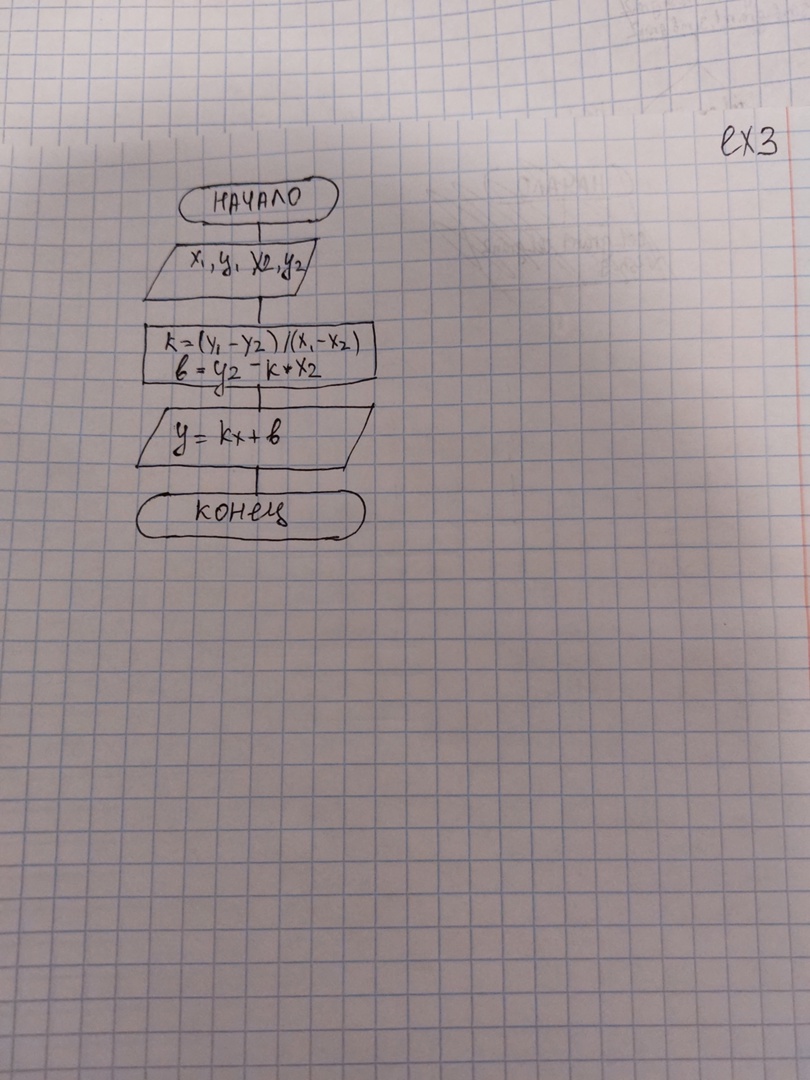 ex3
НАЧАЛО
x₁, y₁ x2, y2
k=(y₁-y2)/(x₁-x2)
в=y2-k*x2
y=kx+в
конец